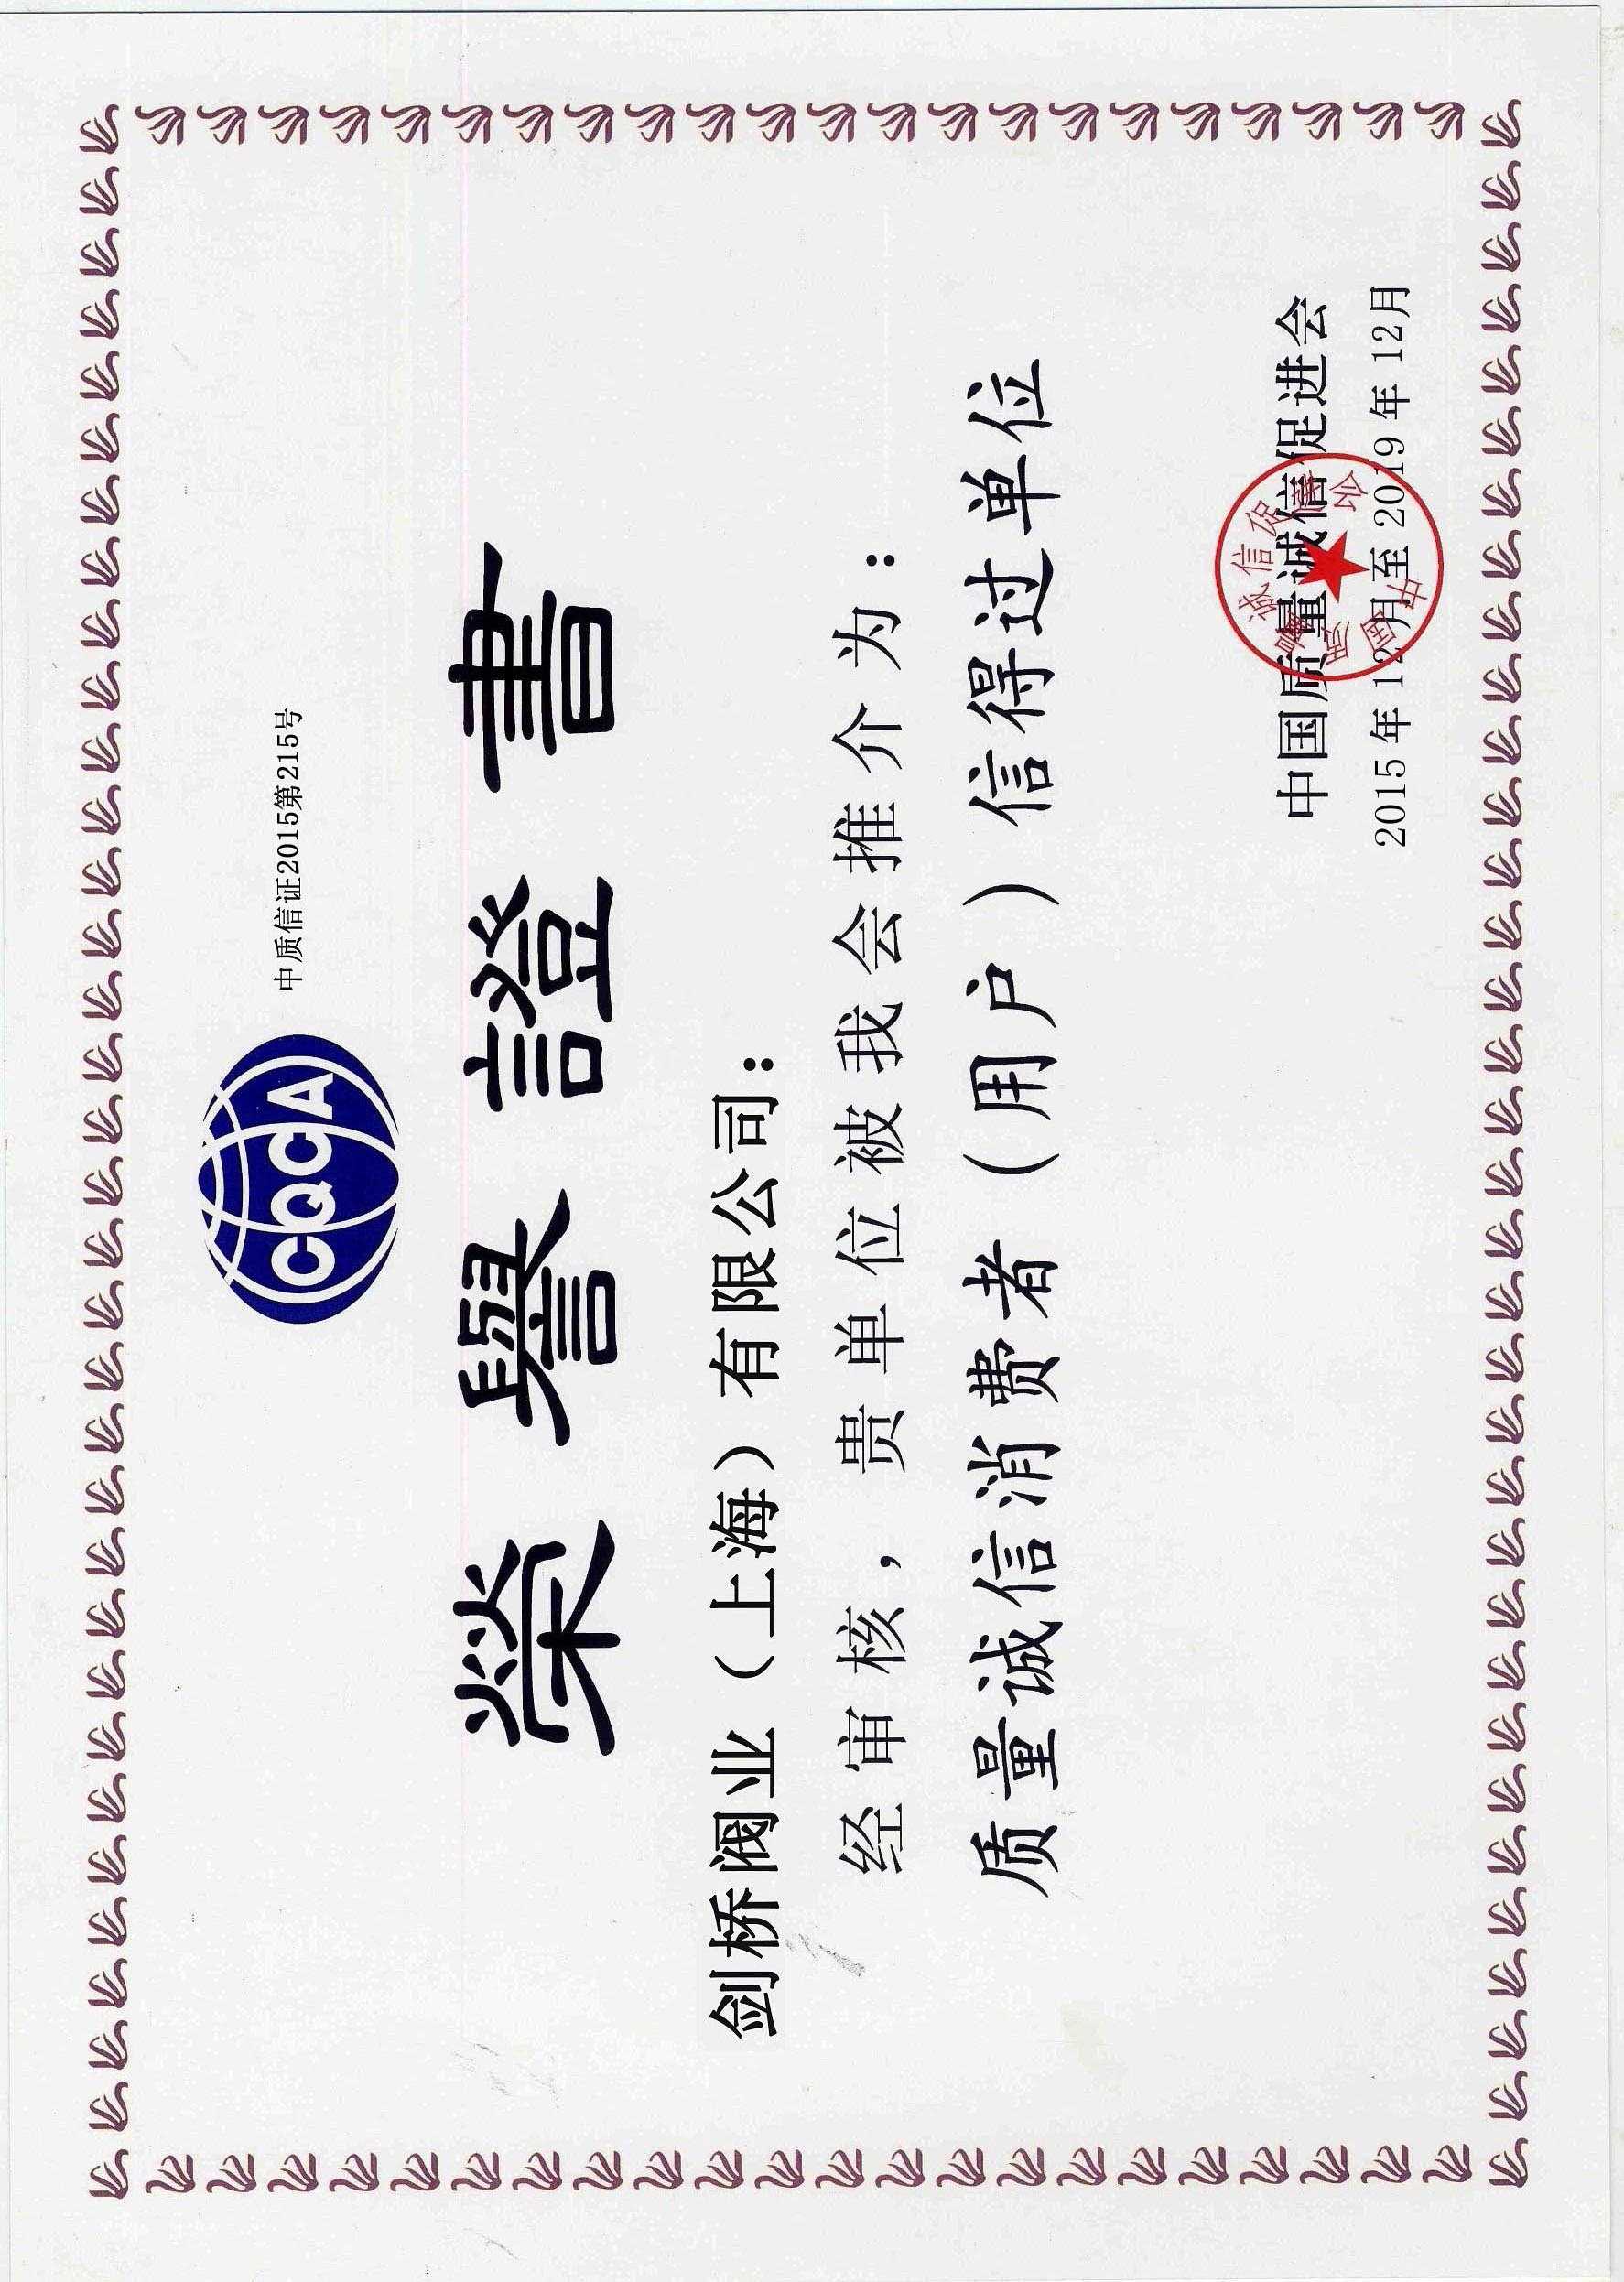 CQCA
中质信证2015第215号
榮譽證書
剑桥阀业（上海）有限公司：
经审核，贵单位被我会推介为：
质量诚信消费者（用户）信得过单位
中国质量诚信促进会
2015年12月至2019年12月
中国质量诚信促进会